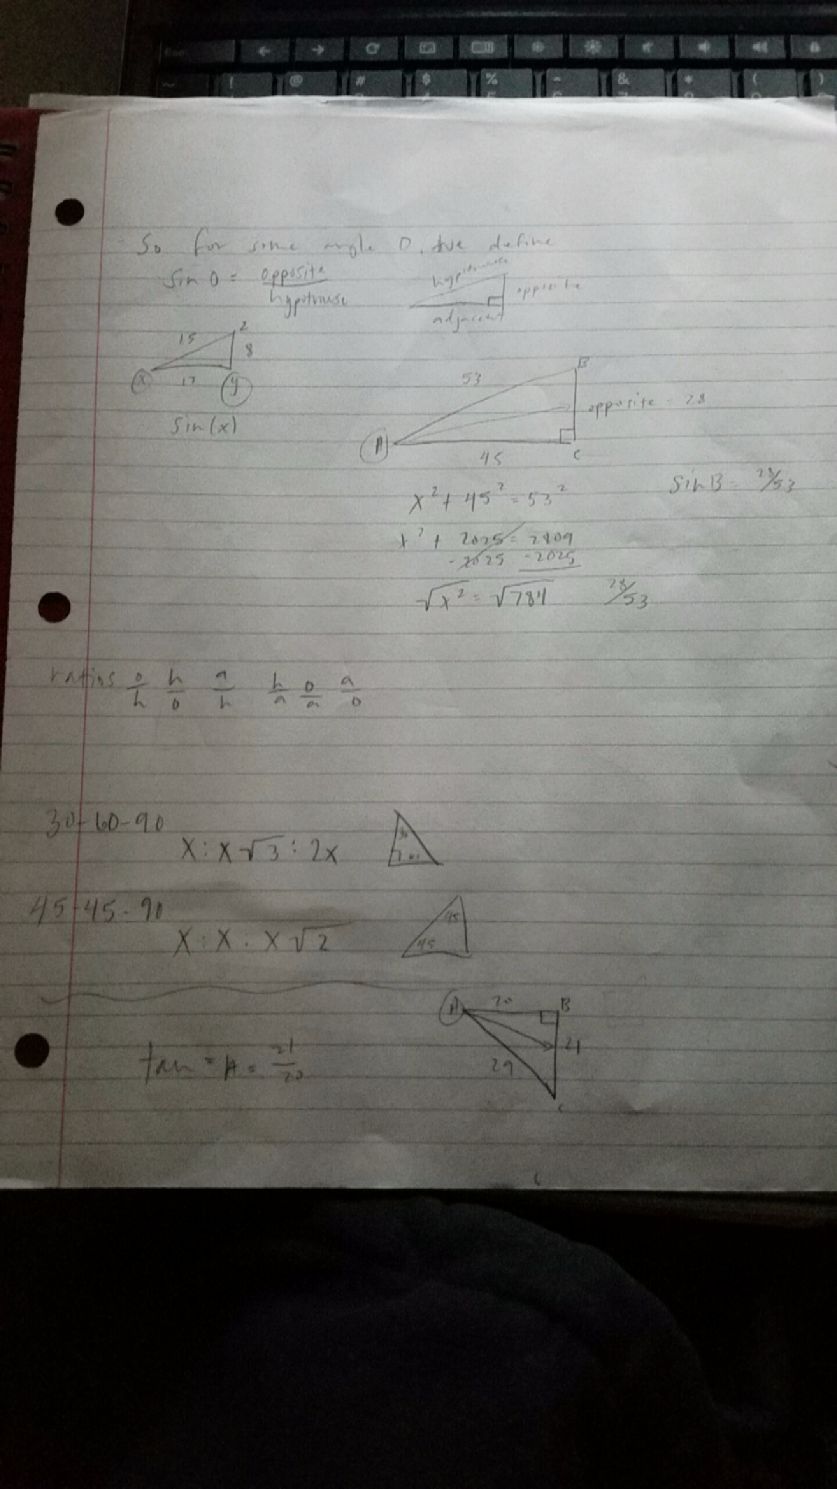 So for some angle θ, we define
sin θ = opposite / hypotnuse
hypotnuse
opposite
adjacent
15
z
8
x
17
y
sin(x)
53
B
opposite = 28
A
45
C
x² + 45² = 53²
sin B = 28/53
x² + 2025 = 2809
-2025 -2025
√x² = √784
28/53
ratios o/h h/o a/h h/a o/a a/o
30-60-90
x : x√3 : 2x
30
60
45-45-90
x : x : x√2
45
45
A
20
B
21
29
C
tan = A = 21/20